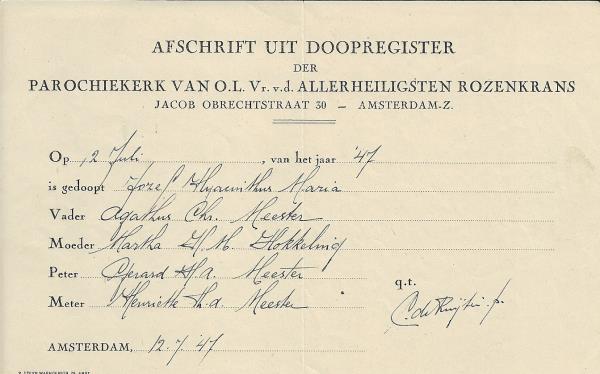 AFSCHRIFT UIT DOOPREGISTER
DER
PAROCHIEKERK VAN O.L. Vr. v.d. ALLERHEILIGSTEN ROZENKRANS
JACOB OBRECHTSTRAAT 30 — AMSTERDAM-Z.
Op 2 Juli, van het jaar '47
is gedoopt Jozef Hyacinthus Maria
Vader Agathus Chr. Meester
Moeder Martha H. M. Hokkeling
Peter Gerard H.A. Meester
q.t.
Meter Henriette Th. d. Meester
C. de Ruijter. p.
AMSTERDAM, 12.7.'47